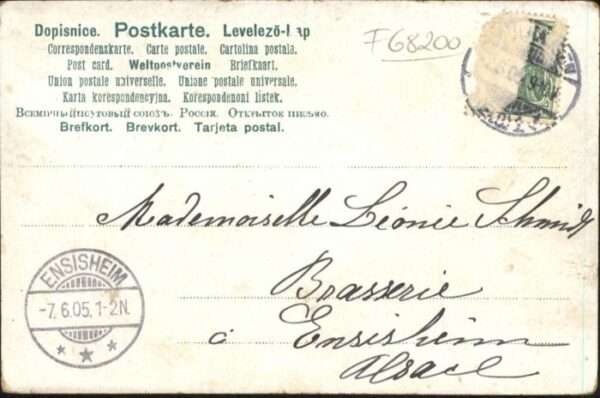 Dopisnice. Postkarte. Levelező-l ap
Correspondenzkarte. Carte postale. Cartolina postala.
Post card. Weltpostverein Briefkaart.
Union postale universelle. Unione postale universale.
Karta korespondencyjna. Korespondenoni listek.
Всемірный почтовый союзъ. Россія. Открытое письмо.
Brefkort. Brevkort. Tarjeta postal.
F68200
Mademoiselle Léonie Schmidt
Brasserie
à Ensisheim
Alsace
ENSISHEIM
-7.6.05.1-2N.